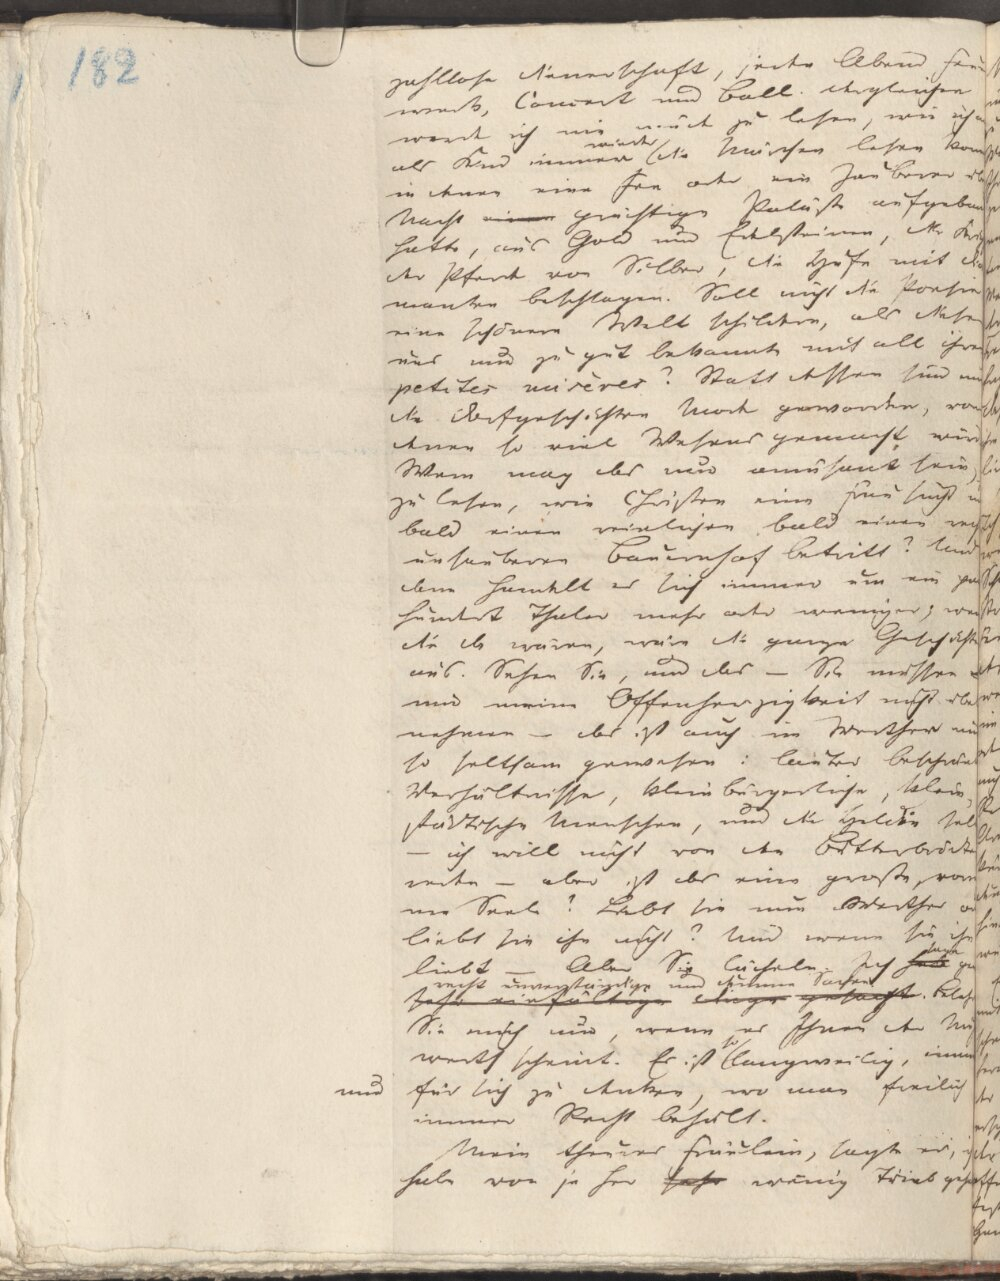 182
zahllose Dienerschaft, jeden Abend Feu
werk, Concert und Ball. Dergleichen
werde ich nie müde zu lesen, wie ich
als Kind immer wieder die Märchen lesen konn
in denen eine Fee oder ein Zauberer übe
Nacht einen prächtige Paläste aufgebau
hatte, aus Gold und Edelsteinen, die
der Pferde von Silber, die Hufe mit Dia
manten beschlagen. Soll nicht die Poesie
eine schönere Welt schildern, als diese
uns nur zu gut bekannte mit all ihren
petites misères? Statt dessen sind nun
die Dorfgeschichten Mode geworden, von
denen so viel Wesens gemacht wird
Wem mag das nur amüsant sein,
zu lesen, wie Christen eine Frau sucht u
bald einen reinlichen bald einen rech
unsauberen Bauernhof betritt? Und
dann handelt es sich immer um ein paa
hundert Thaler mehr oder weniger; wen
die da wären, wäre die ganze Geschichte
aus. Sehen Sie, und das — Sie müssen
nun meine Offenherzigkeit nicht übel
nehmen — das ist auch im Werther mir
so seltsam gewesen: lauter beschrän
Verhältnisse, kleinbürgerliche, klein
städtische Menschen, und die Heldin sel
— ich will nicht von den Butterbröde
reden — aber ist das eine große, vor
me Seele? Liebt sie nun Werther o
liebt sie ihn nicht? Und wenn sie ihn
liebt — Aber Sie lächeln. Ich habe sage ge
recht unverständige und dumme Sachen
sehr einfältige Dinge gesagt. Beleh
Sie mich nur, wenn es Ihnen der Mü
werth scheint. Es ist so langweilig, imm
und für sich zu denken, wo man freilich
immer Recht behält.
Mein theures Fräulein, sagte er,
habe von je her sehr wenig Trieb geha